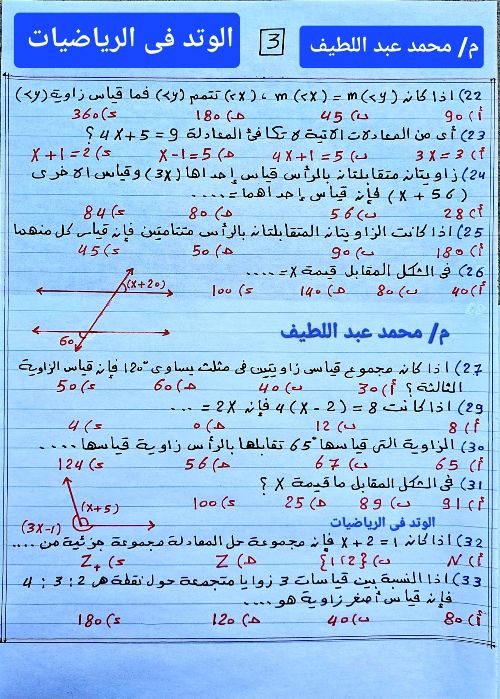 الوتد فى الرياضيات
3
م/ محمد عبد اللطيف
22) اذا كان m(∠X) = m(∠y) ، (∠X) تتمم (∠y) فما قياس زاوية (∠y)
أ) 90 ب) 45 د) 180 ء) 360
23) أى من المعادلات الآتية لا تكافئ المعادلة 4X+5=9 ؟
أ) 3X=3 ب) 4X+1=5 د) X-1=5 ء) X+1=2
24) زاويتان متقابلتان بالرأس قياس إحداها (3X) وقياس الاخرى
(X+56) فإن قياس إحداهما = ....
أ) 28 ب) 56 د) 80 ء) 84
25) اذا كانت الزاويتان المتقابلتان بالرأس متتامتين فإن قياس كل منهما
أ) 180 ب) 90 د) 50 ء) 45
26) فى الشكل المقابل قيمة X = ....
أ) 40 ب) 80 د) 140 ء) 100
(X+20)
60
م/ محمد عبد اللطيف
27) اذا كان مجموع قياسى زاويتين فى مثلث يساوى 120° فإن قياس الزاوية
الثالثة ؟ أ) 30 ب) 40 د) 60 ء) 50
29) اذا كانت 4(X-2) = 8 فإن 2X = ...
أ) 8 ب) 12 د) 0 ء) 4
30) الزاوية التى قياسها 65° تقابلها بالرأس زاوية قياسها ....
أ) 65 ب) 67 د) 56 ء) 124
31) فى الشكل المقابل ما قيمة X ؟
أ) 91 ب) 89 د) 25 ء) 100
(X+5)
(3X-1)
الوتد فى الرياضيات
32) اذا كان X+2=1 فإن مجموعة حل المعادلة مجموعة جزئية من ....
أ) N ب) {1,2} د) Z ء) Z+
33) اذا النسبة بين قياسات 3 زوايا متجمعة حول نقطة هى 2 : 3 : 4
فإن قياس أصغر زاوية هو ....
أ) 80 ب) 40 د) 120 ء) 180